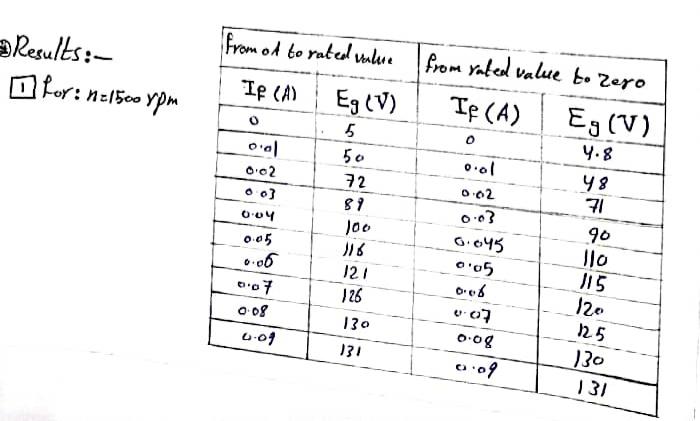 ② Results:-
1 for: n=1500 rpm
from 0A to rated value | from rated value to zero
If (A) | Eg (V) | If (A) | Eg (V)
0 | 5 | 0 | 4.8
0.01 | 50 | 0.01 | 48
0.02 | 72 | 0.02 | 71
0.03 | 89 | 0.03 | 90
0.04 | 100 | 0.045 | 110
0.05 | 116 | 0.05 | 115
0.06 | 121 | 0.06 | 120
0.07 | 126 | 0.07 | 125
0.08 | 130 | 0.08 | 130
0.09 | 131 | 0.09 | 131